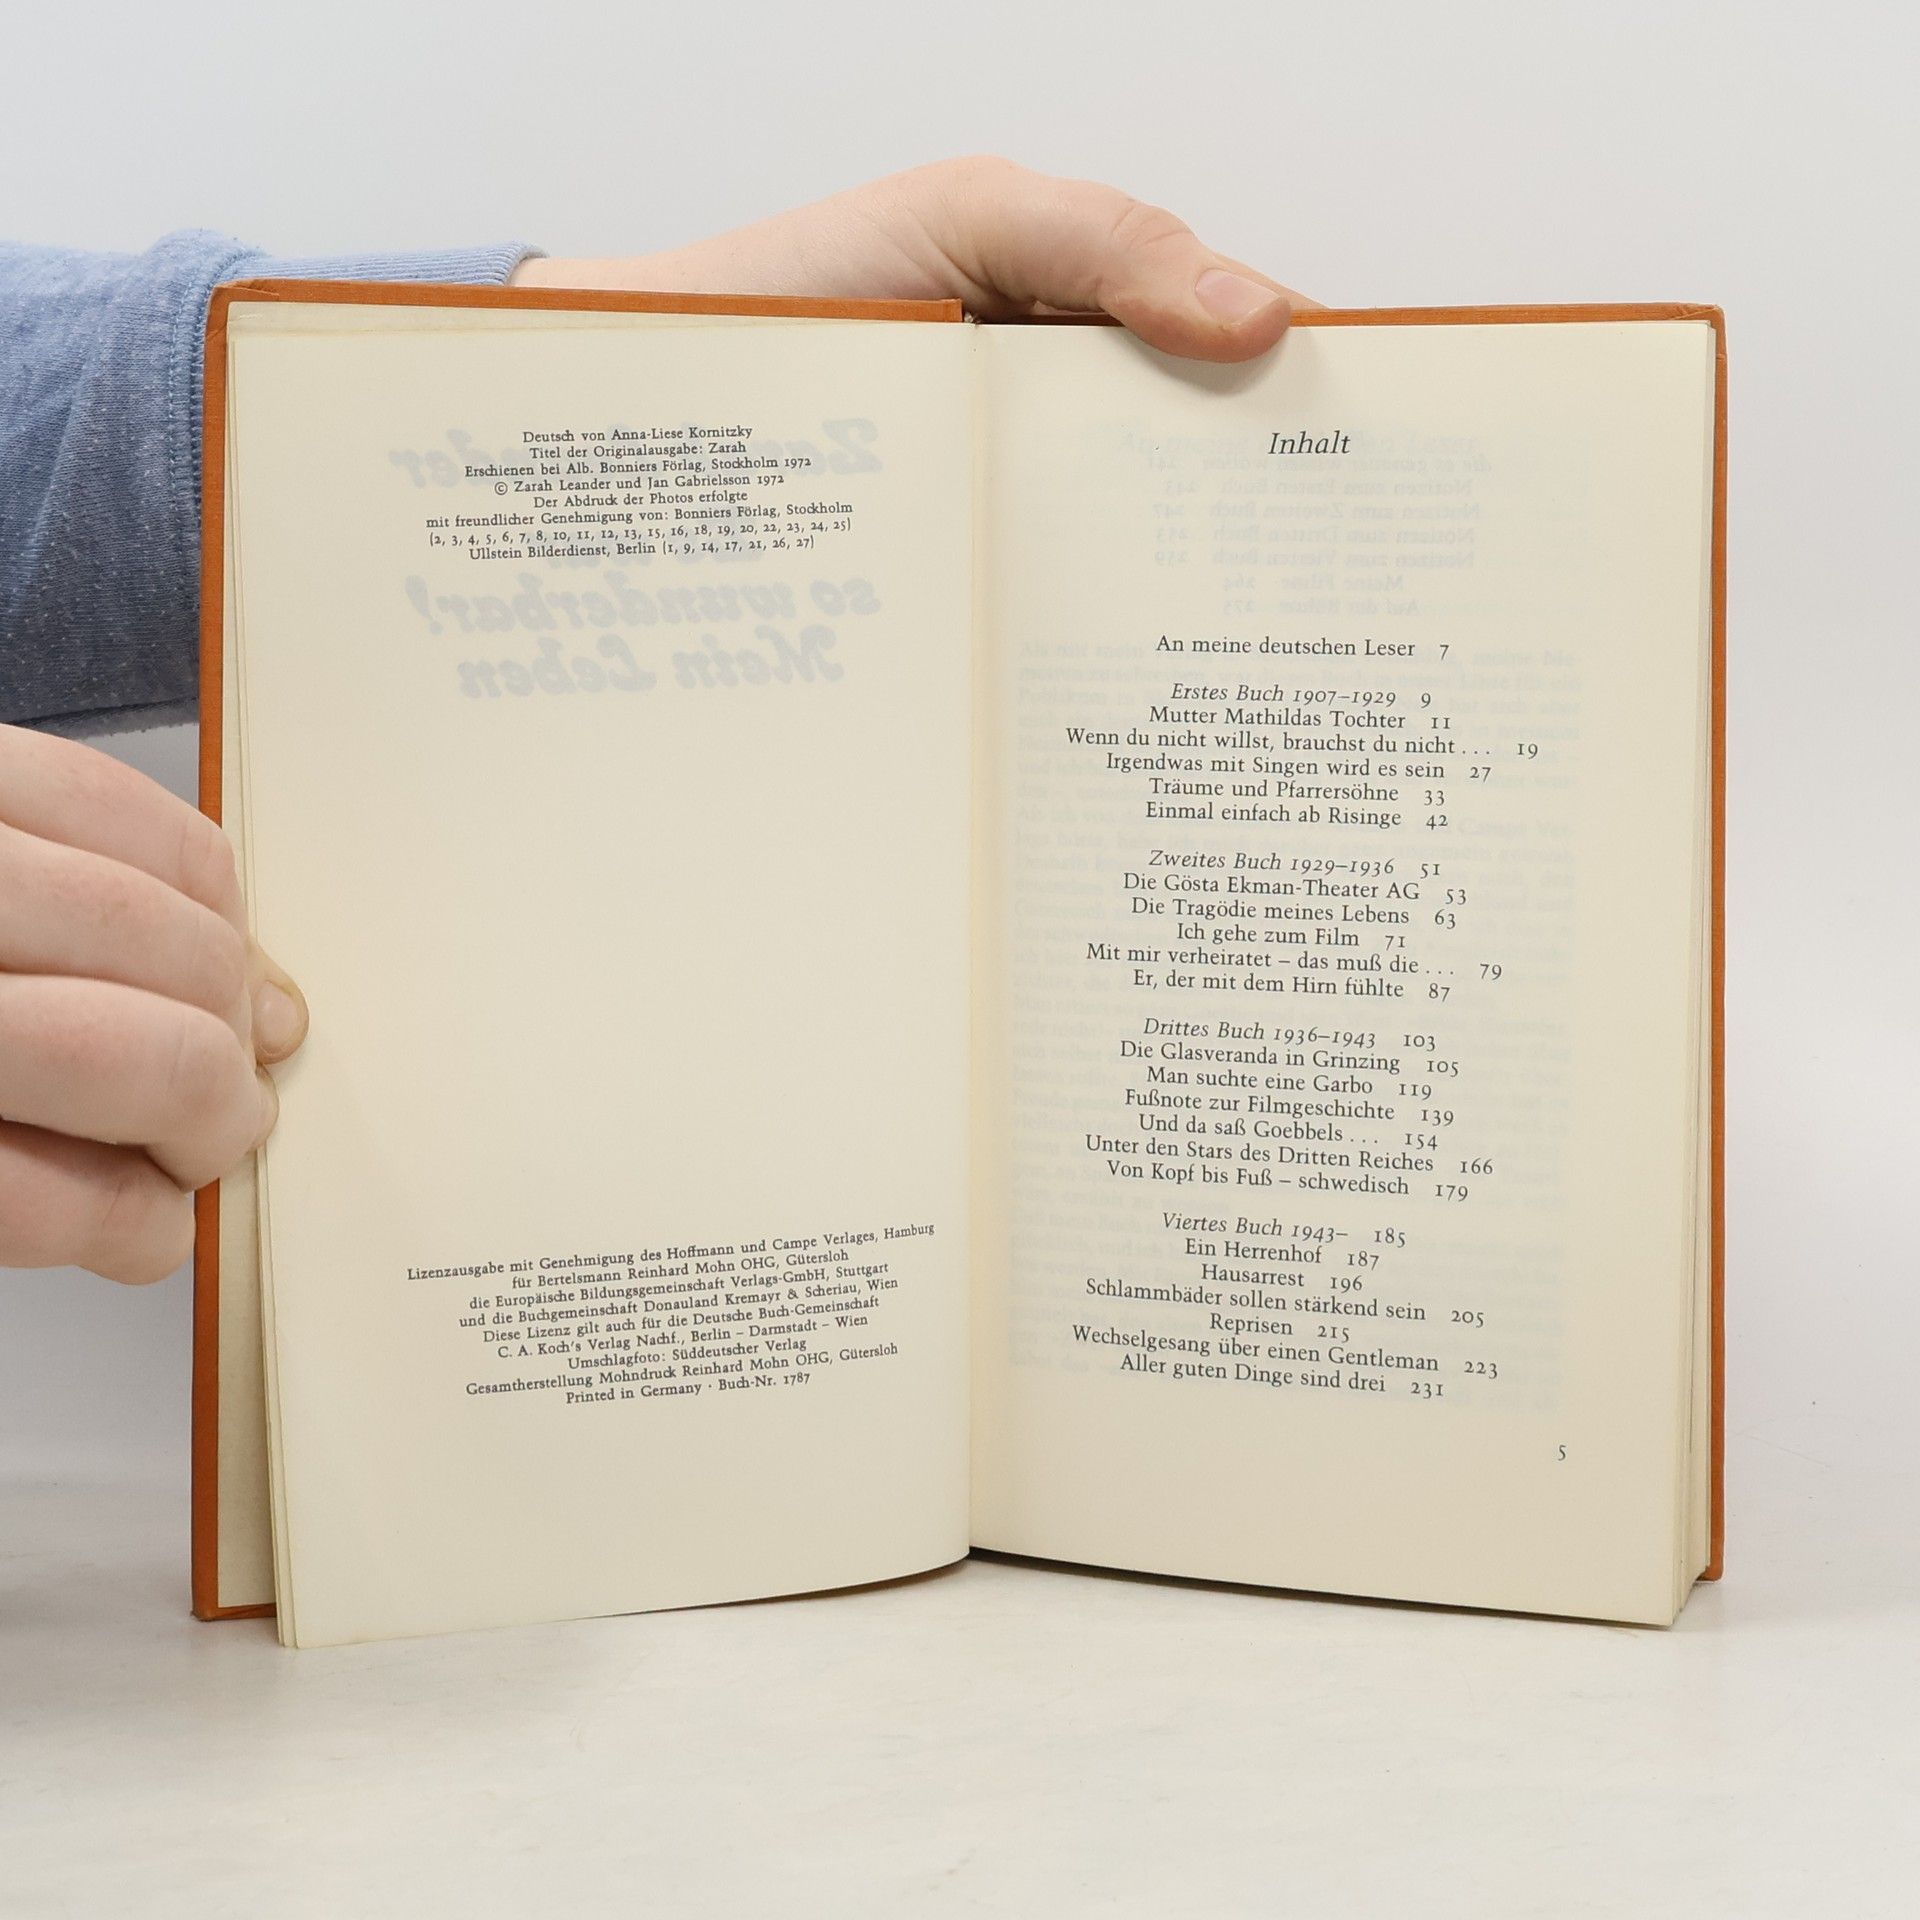 Deutsch von Anna-Liese Kornitzky
Titel der Originalausgabe: Zarah
Erschienen bei Alb. Bonniers Förlag, Stockholm 1972
© Zarah Leander und Jan Gabrielsson 1972
Der Abdruck der Photos erfolgte
mit freundlicher Genehmigung von: Bonniers Förlag, Stockholm
(2, 3, 4, 5, 6, 7, 8, 10, 11, 12, 13, 15, 16, 18, 19, 20, 22, 23, 24, 25)
Ullstein Bilderdienst, Berlin (1, 9, 14, 17, 21, 26, 27)
so wunderbar!
Mein Leben
Lizenzausgabe mit Genehmigung des Hoffmann und Campe Verlages, Hamburg
für Bertelsmann Reinhard Mohn OHG, Gütersloh
die Europäische Bildungsgemeinschaft Verlags-GmbH, Stuttgart
und die Buchgemeinschaft Donauland Kremayr & Scheriau, Wien
Diese Lizenz gilt auch für die Deutsche Buch-Gemeinschaft
C. A. Koch's Verlag Nachf., Berlin – Darmstadt – Wien
Umschlagfoto: Süddeutscher Verlag
Gesamtherstellung Mohndruck Reinhard Mohn OHG, Gütersloh
Printed in Germany · Buch-Nr. 1787
Inhalt
An meine deutschen Leser 7
Erstes Buch 1907–1929 9
Mutter Mathildas Tochter 11
Wenn du nicht willst, brauchst du nicht . . . 19
Irgendwas mit Singen wird es sein 27
Träume und Pfarrersöhne 33
Einmal einfach ab Risinge 42
Zweites Buch 1929–1936 51
Die Gösta Ekman-Theater AG 53
Die Tragödie meines Lebens 63
Ich gehe zum Film 71
Mit mir verheiratet – das muß die . . . 79
Er, der mit dem Hirn fühlte 87
Drittes Buch 1936–1943 103
Die Glasveranda in Grinzing 105
Man suchte eine Garbo 119
Fußnote zur Filmgeschichte 139
Und da saß Goebbels . . . 154
Unter den Stars des Dritten Reiches 166
Von Kopf bis Fuß – schwedisch 179
Viertes Buch 1943– 185
Ein Herrenhof 187
Hausarrest 196
Schlammbäder sollen stärkend sein 205
Reprisen 215
Wechselgesang über einen Gentleman 223
Aller guten Dinge sind drei 231
5